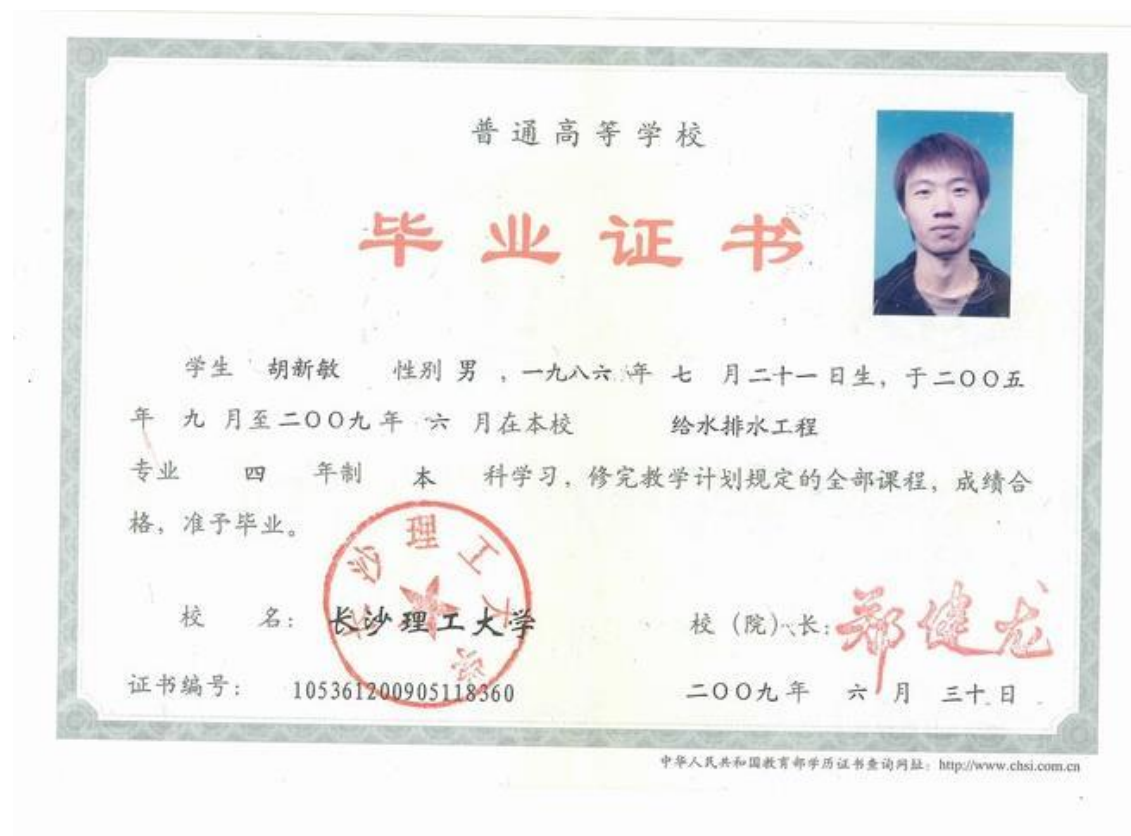 普通高等学校
毕业证书
学生 胡新敏 性别 男 ，一九八六 年 七 月二十一日生，于二〇〇五
年 九 月至二〇〇九年 六 月在本校 给水排水工程
专业 四 年制 本 科学习，修完教学计划规定的全部课程，成绩合
格，准予毕业。
长沙理工大学
校 名： 长沙理工大学 校（院）长：郑健龙
证书编号： 105361200905118360 二〇〇九年 六 月 三十 日
中华人民共和国教育部学历证书查询网址：http://www.chsi.com.cn